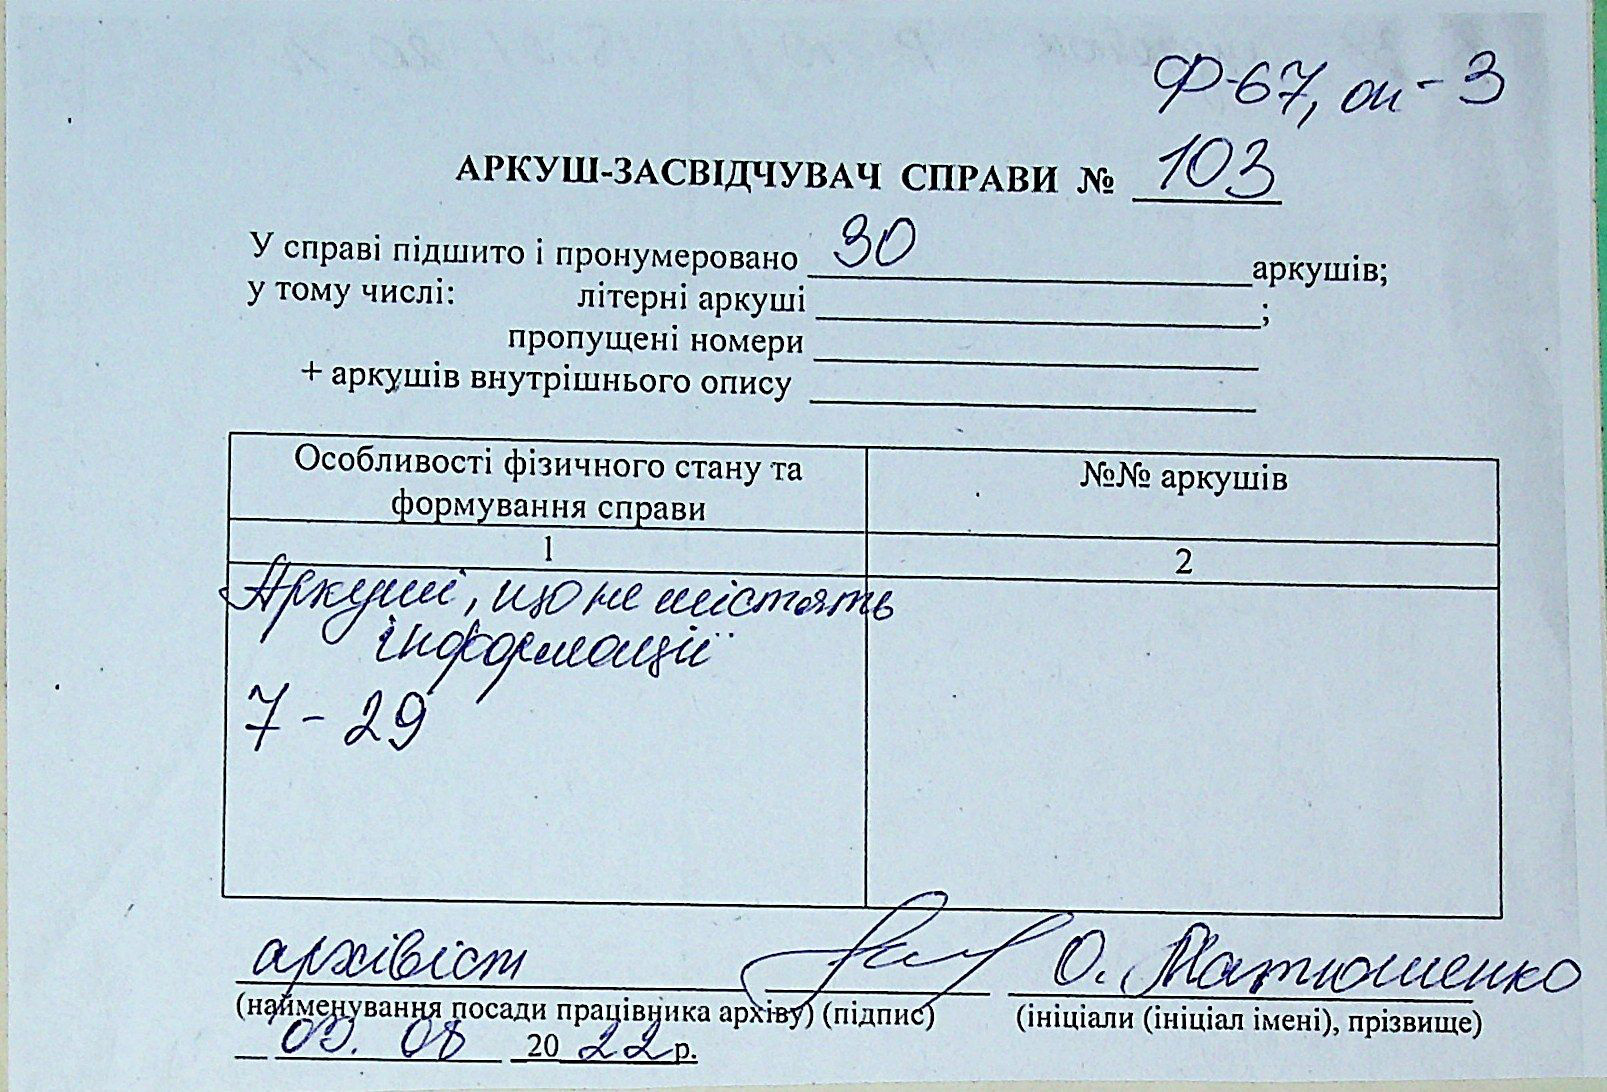 Ф-67, оп - 3
АРКУШ-ЗАСВІДЧУВАЧ СПРАВИ № 103
У справі підшито і пронумеровано 30 аркушів;
у тому числі: літерні аркуші ;
пропущені номери
+ аркушів внутрішнього опису
Особливості фізичного стану та
формування справи
№№ аркушів
1
2
Аркуші, що не містять
інформації
7 - 29
архівіст О. Матюшенко
(найменування посади працівника архіву) (підпис) (ініціали (ініціал імені), прізвище)
03. 08 2022 р.